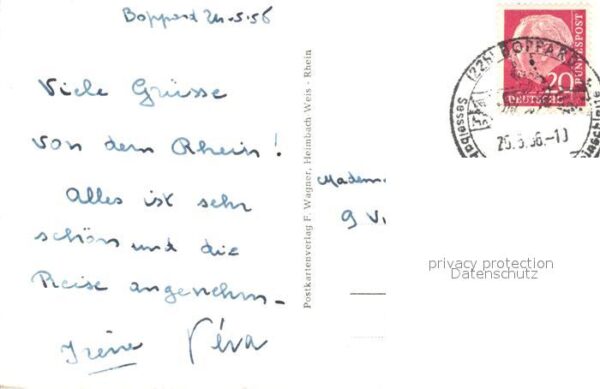 Boppard 24.5.56
Viele Grüsse
von dem Rhein!
Alles ist sehr
schön und die
Reise angenehm.
Irene Véra
Postkartenverlag F. Wagner, Heimbach Weis - Rhein
Madem.
9 Vi
(22b) BOPPARD
20
DEUTSCHE
BUNDESPOST
privacy protection
Datenschutz